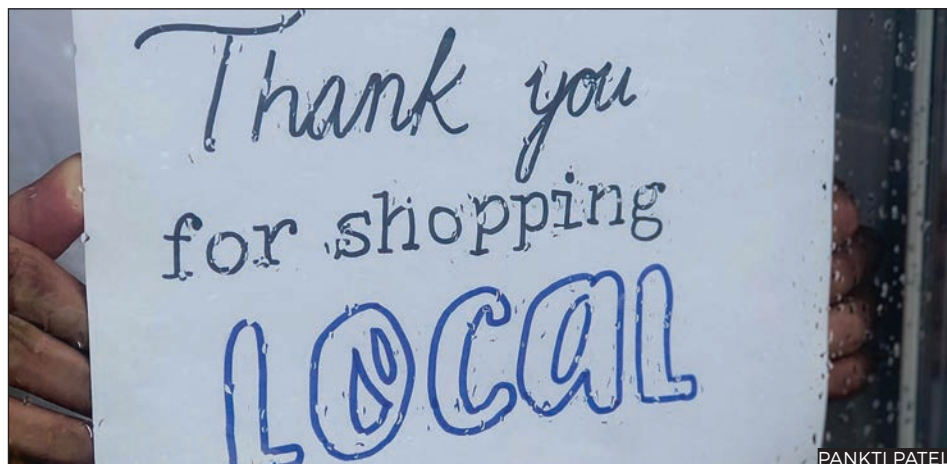 Thank you
for shopping
LOCAL
PANKTI PATEL